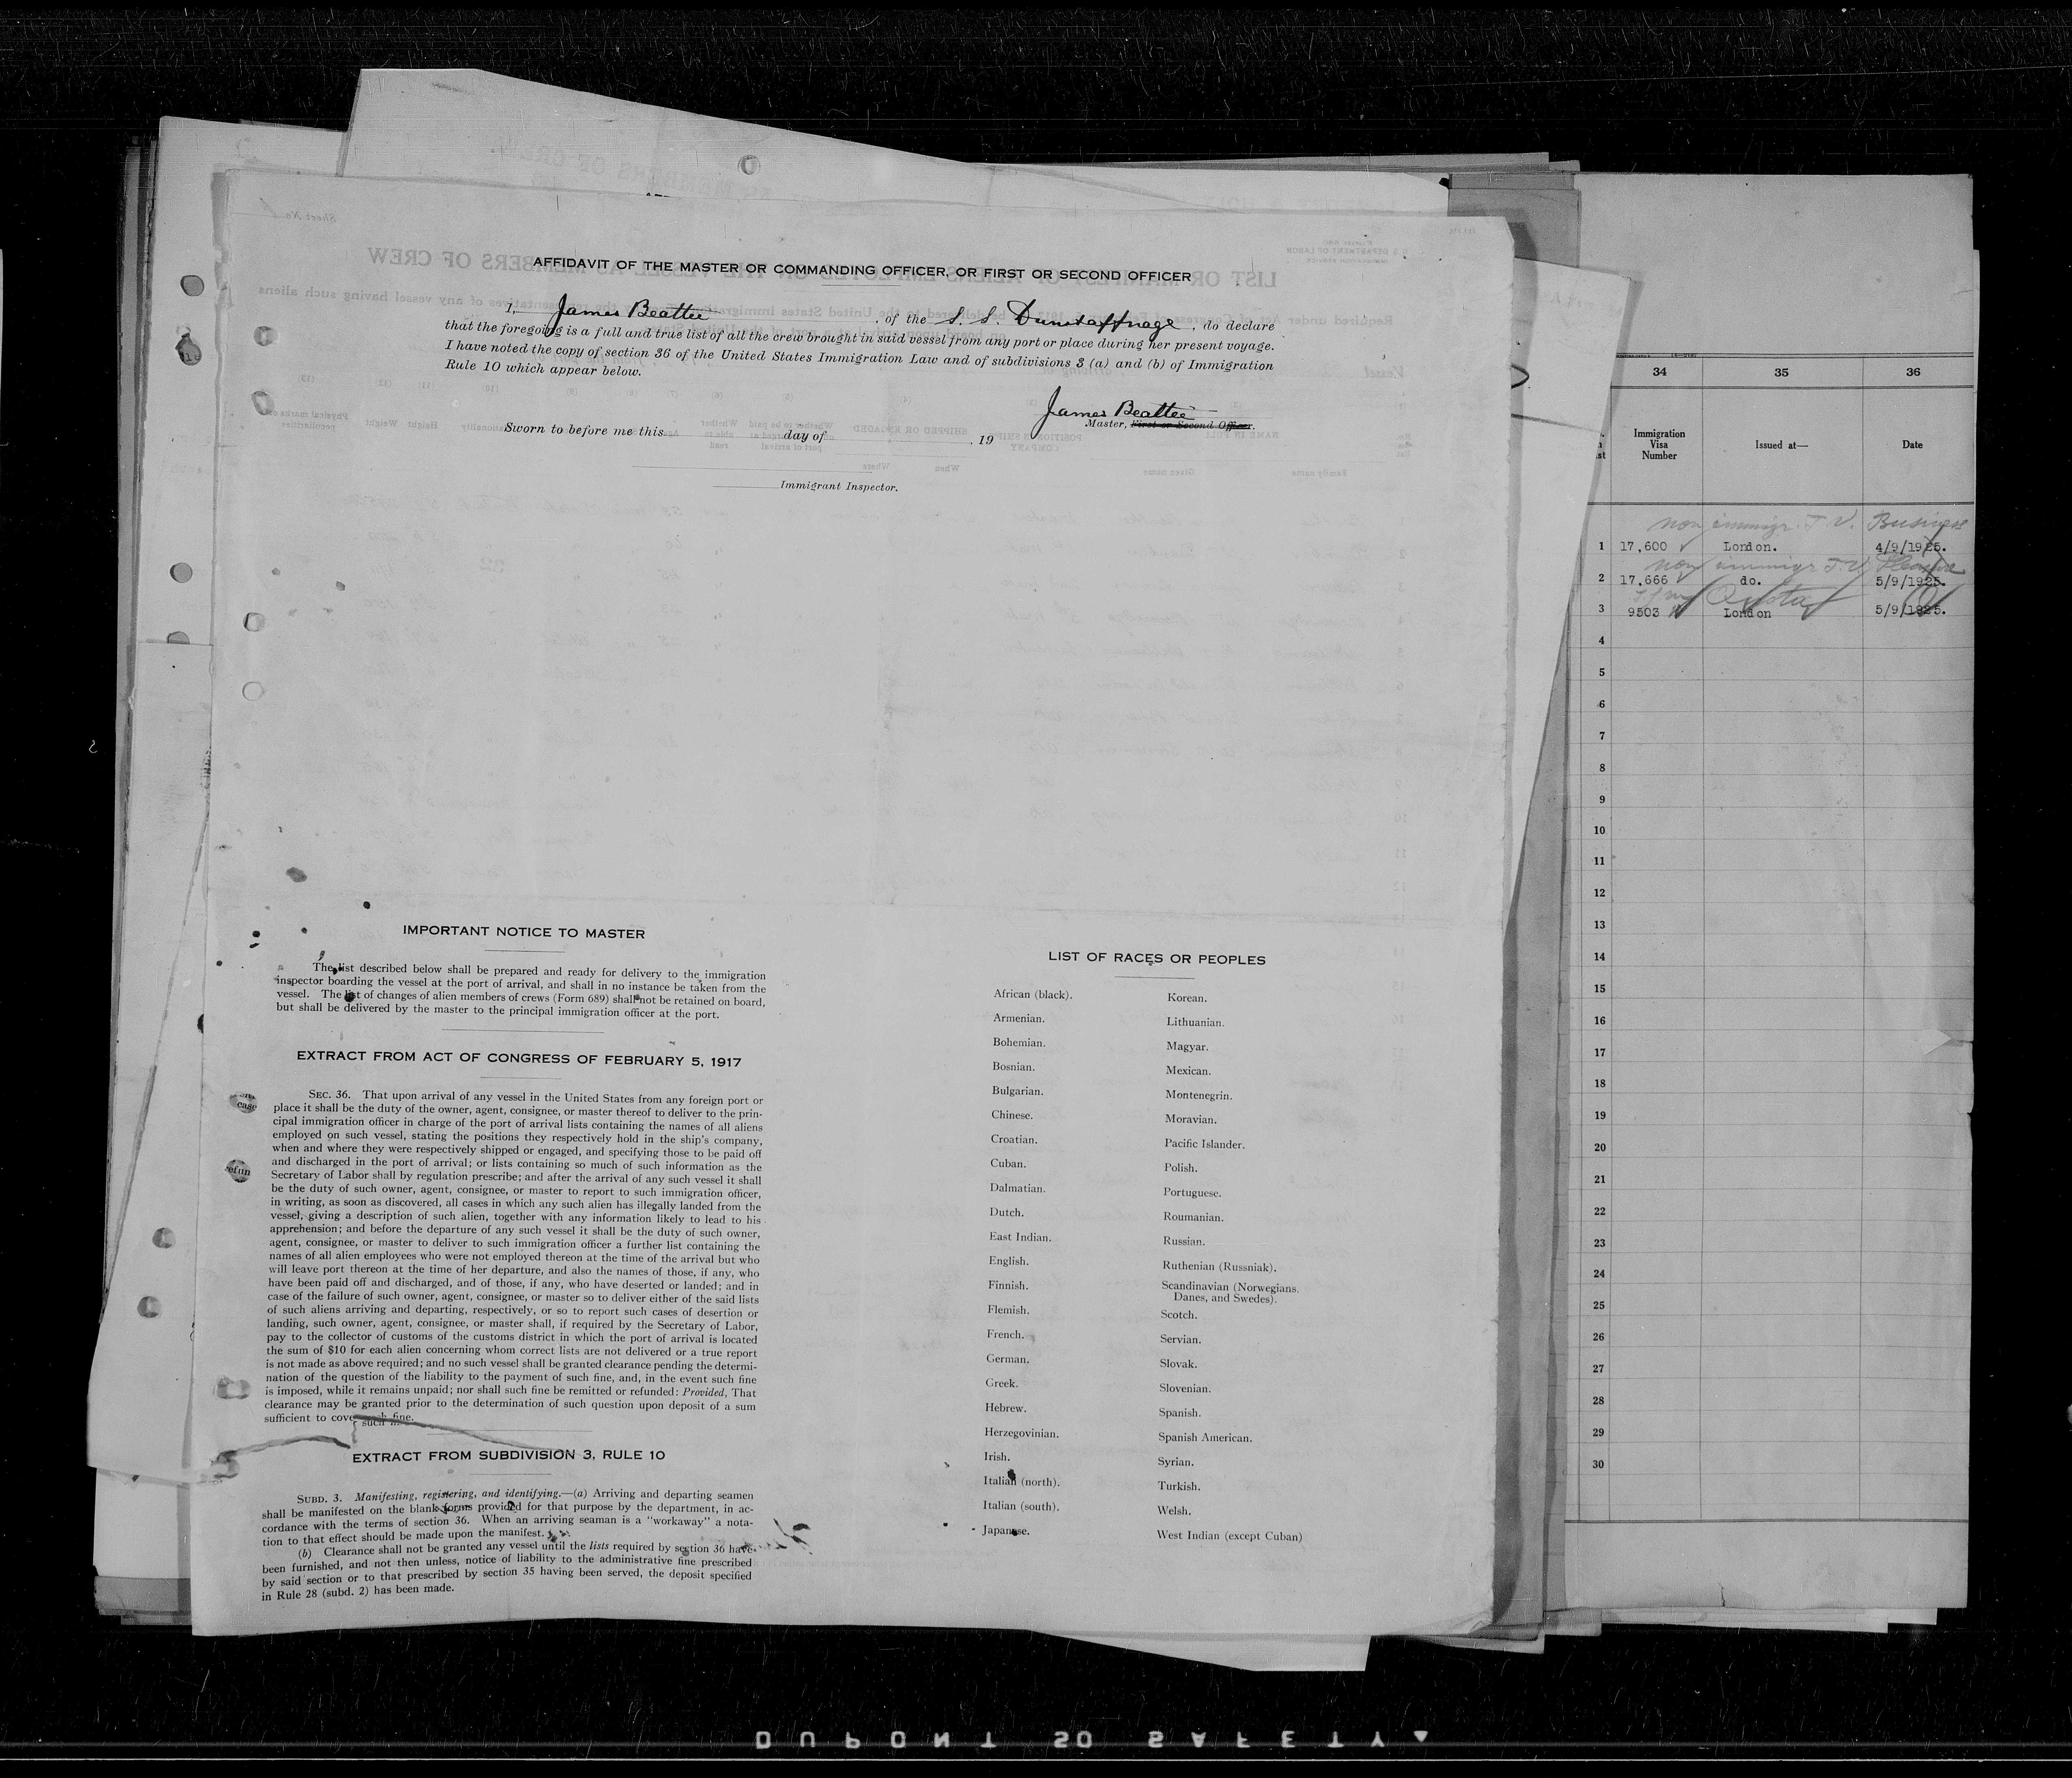 AFFIDAVIT OF THE MASTER OR COMMANDING OFFICER, OR FIRST OR SECOND OFFICER
I, James Beattie, of the S. S. Dunstaffnage, do declare
that the foregoing is a full and true list of all the crew brought in said vessel from any port or place during her present voyage.
I have noted the copy of section 36 of the United States Immigration Law and of subdivisions 3 (a) and (b) of Immigration
Rule 10 which appear below.
James Beattie
Master, First or Second Officer.
Sworn to before me this day of , 19
Immigrant Inspector.
IMPORTANT NOTICE TO MASTER
The list described below shall be prepared and ready for delivery to the immigration
inspector boarding the vessel at the port of arrival, and shall in no instance be taken from the
vessel. The list of changes of alien members of crews (Form 689) shall not be retained on board,
but shall be delivered by the master to the principal immigration officer at the port.
EXTRACT FROM ACT OF CONGRESS OF FEBRUARY 5, 1917
SEC. 36. That upon arrival of any vessel in the United States from any foreign port or
place it shall be the duty of the owner, agent, consignee, or master thereof to deliver to the prin-
cipal immigration officer in charge of the port of arrival lists containing the names of all aliens
employed on such vessel, stating the positions they respectively hold in the ship's company,
when and where they were respectively shipped or engaged, and specifying those to be paid off
and discharged in the port of arrival; or lists containing so much of such information as the
Secretary of Labor shall by regulation prescribe; and after the arrival of any such vessel it shall
be the duty of such owner, agent, consignee, or master to report to such immigration officer,
in writing, as soon as discovered, all cases in which any such alien has illegally landed from the
vessel, giving a description of such alien, together with any information likely to lead to his
apprehension; and before the departure of any such vessel it shall be the duty of such owner,
agent, consignee, or master to deliver to such immigration officer a further list containing the
names of all alien employees who were not employed thereon at the time of the arrival but who
will leave port thereon at the time of her departure, and also the names of those, if any, who
have been paid off and discharged, and of those, if any, who have deserted or landed; and in
case of the failure of such owner, agent, consignee, or master so to deliver either of the said lists
of such aliens arriving and departing, respectively, or so to report such cases of desertion or
landing, such owner, agent, consignee, or master shall, if required by the Secretary of Labor,
pay to the collector of customs of the customs district in which the port of arrival is located
the sum of $10 for each alien concerning whom correct lists are not delivered or a true report
is not made as above required; and no such vessel shall be granted clearance pending the determi-
nation of the question of the liability to the payment of such fine, and, in the event such fine
is imposed, while it remains unpaid; nor shall such fine be remitted or refunded: Provided, That
clearance may be granted prior to the determination of such question upon deposit of a sum
sufficient to cover such fine.
EXTRACT FROM SUBDIVISION 3, RULE 10
SUBD. 3. Manifesting, registering, and identifying.—(a) Arriving and departing seamen
shall be manifested on the blank forms provided for that purpose by the department, in ac-
cordance with the terms of section 36. When an arriving seaman is a "workaway" a nota-
tion to that effect should be made upon the manifest.
(b) Clearance shall not be granted any vessel until the lists required by section 36 have
been furnished, and not then unless, notice of liability to the administrative fine prescribed
by said section or to that prescribed by section 35 having been served, the deposit specified
in Rule 28 (subd. 2) has been made.
LIST OF RACES OR PEOPLES
African (black).
Armenian.
Bohemian.
Bosnian.
Bulgarian.
Chinese.
Croatian.
Cuban.
Dalmatian.
Dutch.
East Indian.
English.
Finnish.
Flemish.
French.
German.
Greek.
Hebrew.
Herzegovinian.
Irish.
Italian (north).
Italian (south).
Japanese.
Korean.
Lithuanian.
Magyar.
Mexican.
Montenegrin.
Moravian.
Pacific Islander.
Polish.
Portuguese.
Roumanian.
Russian.
Ruthenian (Russniak).
Scandinavian (Norwegians,
Danes, and Swedes).
Scotch.
Servian.
Slovak.
Slovenian.
Spanish.
Spanish American.
Syrian.
Turkish.
Welsh.
West Indian (except Cuban)
34 35 36
Immigration
Visa
Number
Issued at—
Date
non immigr. T. V. Business
1 17,600 London. 4/9/1925.
non immigr T. V. Pleasure
2 17,666 do. 5/9/1925.
Quota
3 9503 London 5/9/1925.
4
5
6
7
8
9
10
11
12
13
14
15
16
17
18
19
20
21
22
23
24
25
26
27
28
29
30
DUPONT 50 SAFETY